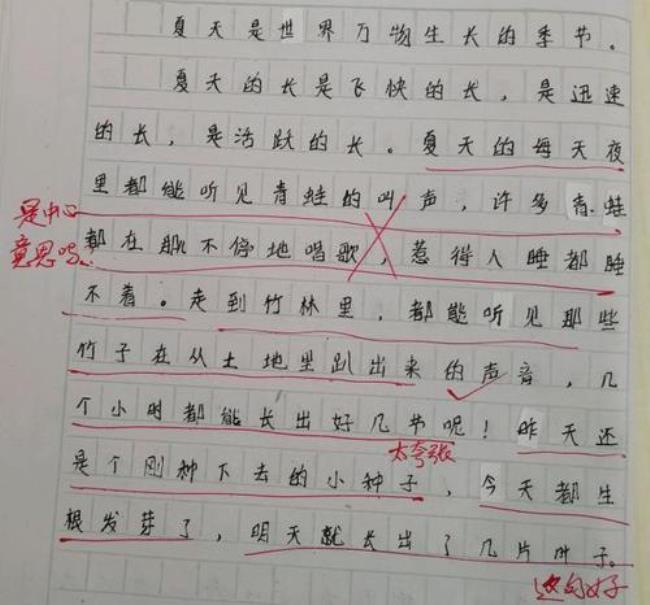 夏天是世界万物生长的季节。
夏天的长是飞快的长，是迅速
的长，是活跃的长。夏天的每天夜
里都能听见青蛙的叫声，许多青蛙
是中心
意思吗
都在那不停地唱歌，惹得人睡都睡
不着。走到竹林里，都能听见那些
竹子在从土地里趴出来的声音，几
个小时都能长出好几节呢！昨天还
太夸张
是个刚种下去的小种子，今天都生
根发芽了，明天就长出了几片叶子。
这句好